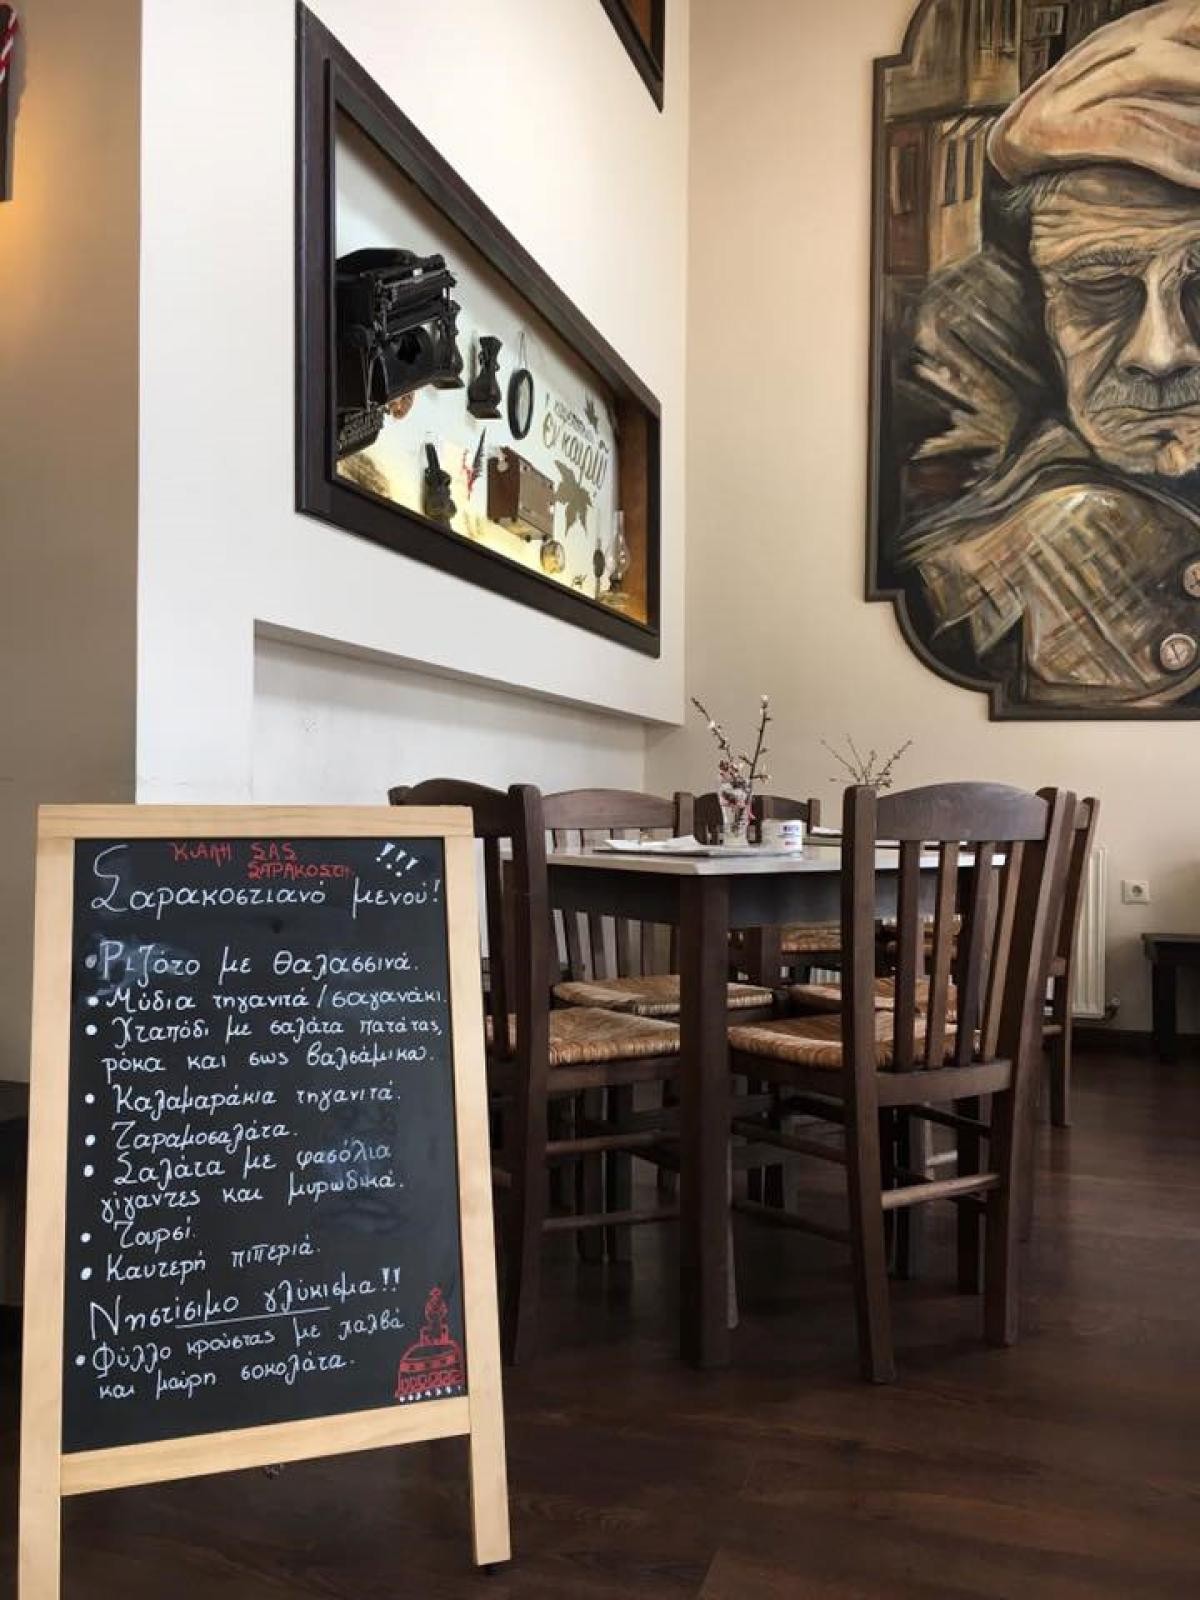 ΚΑΛΗ ΣΑΣ
ΣΑΡΑΚΟΣΤΗ !!!
Σαρακοστιανό μενού!
• Ριζότο με θαλασσινά.
• Μύδια τηγανιτά/σαγανάκι.
• Χταπόδι με σαλάτα πατάτας,
ρόκα και σως βαλσάμικο.
• Καλαμαράκια τηγανιτά.
• Ταραμοσαλάτα.
• Σαλάτα με φασόλια
γίγαντες και μυρωδικά.
• Τουρσί.
• Καυτερή πιπεριά.
Νηστίσιμο γλύκισμα!!
• Φύλλο κρούστας με χαλβά
και μαύρη σοκολάτα.